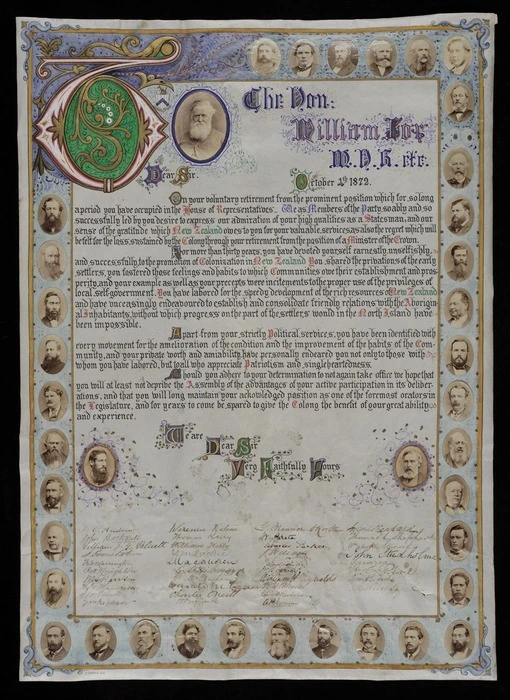 The Hon:
William Fox
M.H.R. etc.
Dear Sir,
October 4th 1872.
On your voluntary retirement from the prominent position which for so long
a period you have occupied in the House of Representatives, We as Members of the Party so ably and so
successfully led by you desire to express our admiration of your high qualities as a Statesman, and our
sense of the gratitude which New Zealand owes to you for your valuable services, as also the regret which will
be felt for the loss sustained by the Colony through your retirement from the position of a Minister of the Crown.
For more than thirty years, you have devoted yourself earnestly, unselfishly,
and successfully, to the promotion of Colonization in New Zealand. You shared the privations of the early
settlers, you fostered those feelings and habits to which Communities owe their establishment and pros-
perity, and your example as well as your precepts were incitements to the proper use of the privileges of
local self-government. You have labored for the speedy development of the rich resources of New Zealand
and have unceasingly endeavoured to establish and consolidate friendly relations with the Aborigi-
nal Inhabitants, without which progress on the part of the settlers would in the North Island have
been impossible.
Apart from your strictly Political services, you have been identified with
every movement for the amelioration of the condition and the improvement of the habits of the Com-
munity, and your private worth and amiability have personally endeared you not only to those with
whom you have labored, but to all who appreciate Patriotism and singleheartedness.
Should you adhere to your determination to not again take office we hope that
you will at least not deprive the Assembly of the advantages of your active participation in its deliber-
ations, and that you will long maintain your acknowledged position as one of the foremost orators in
the Legislature, and for years to come be spared to give the Colony the benefit of your great ability
and experience.
We are
Dear Sir
Very Faithfully Yours
Thomas Kelly
William Kelly
Charles Parker
John Studholme
Charles O'Neill